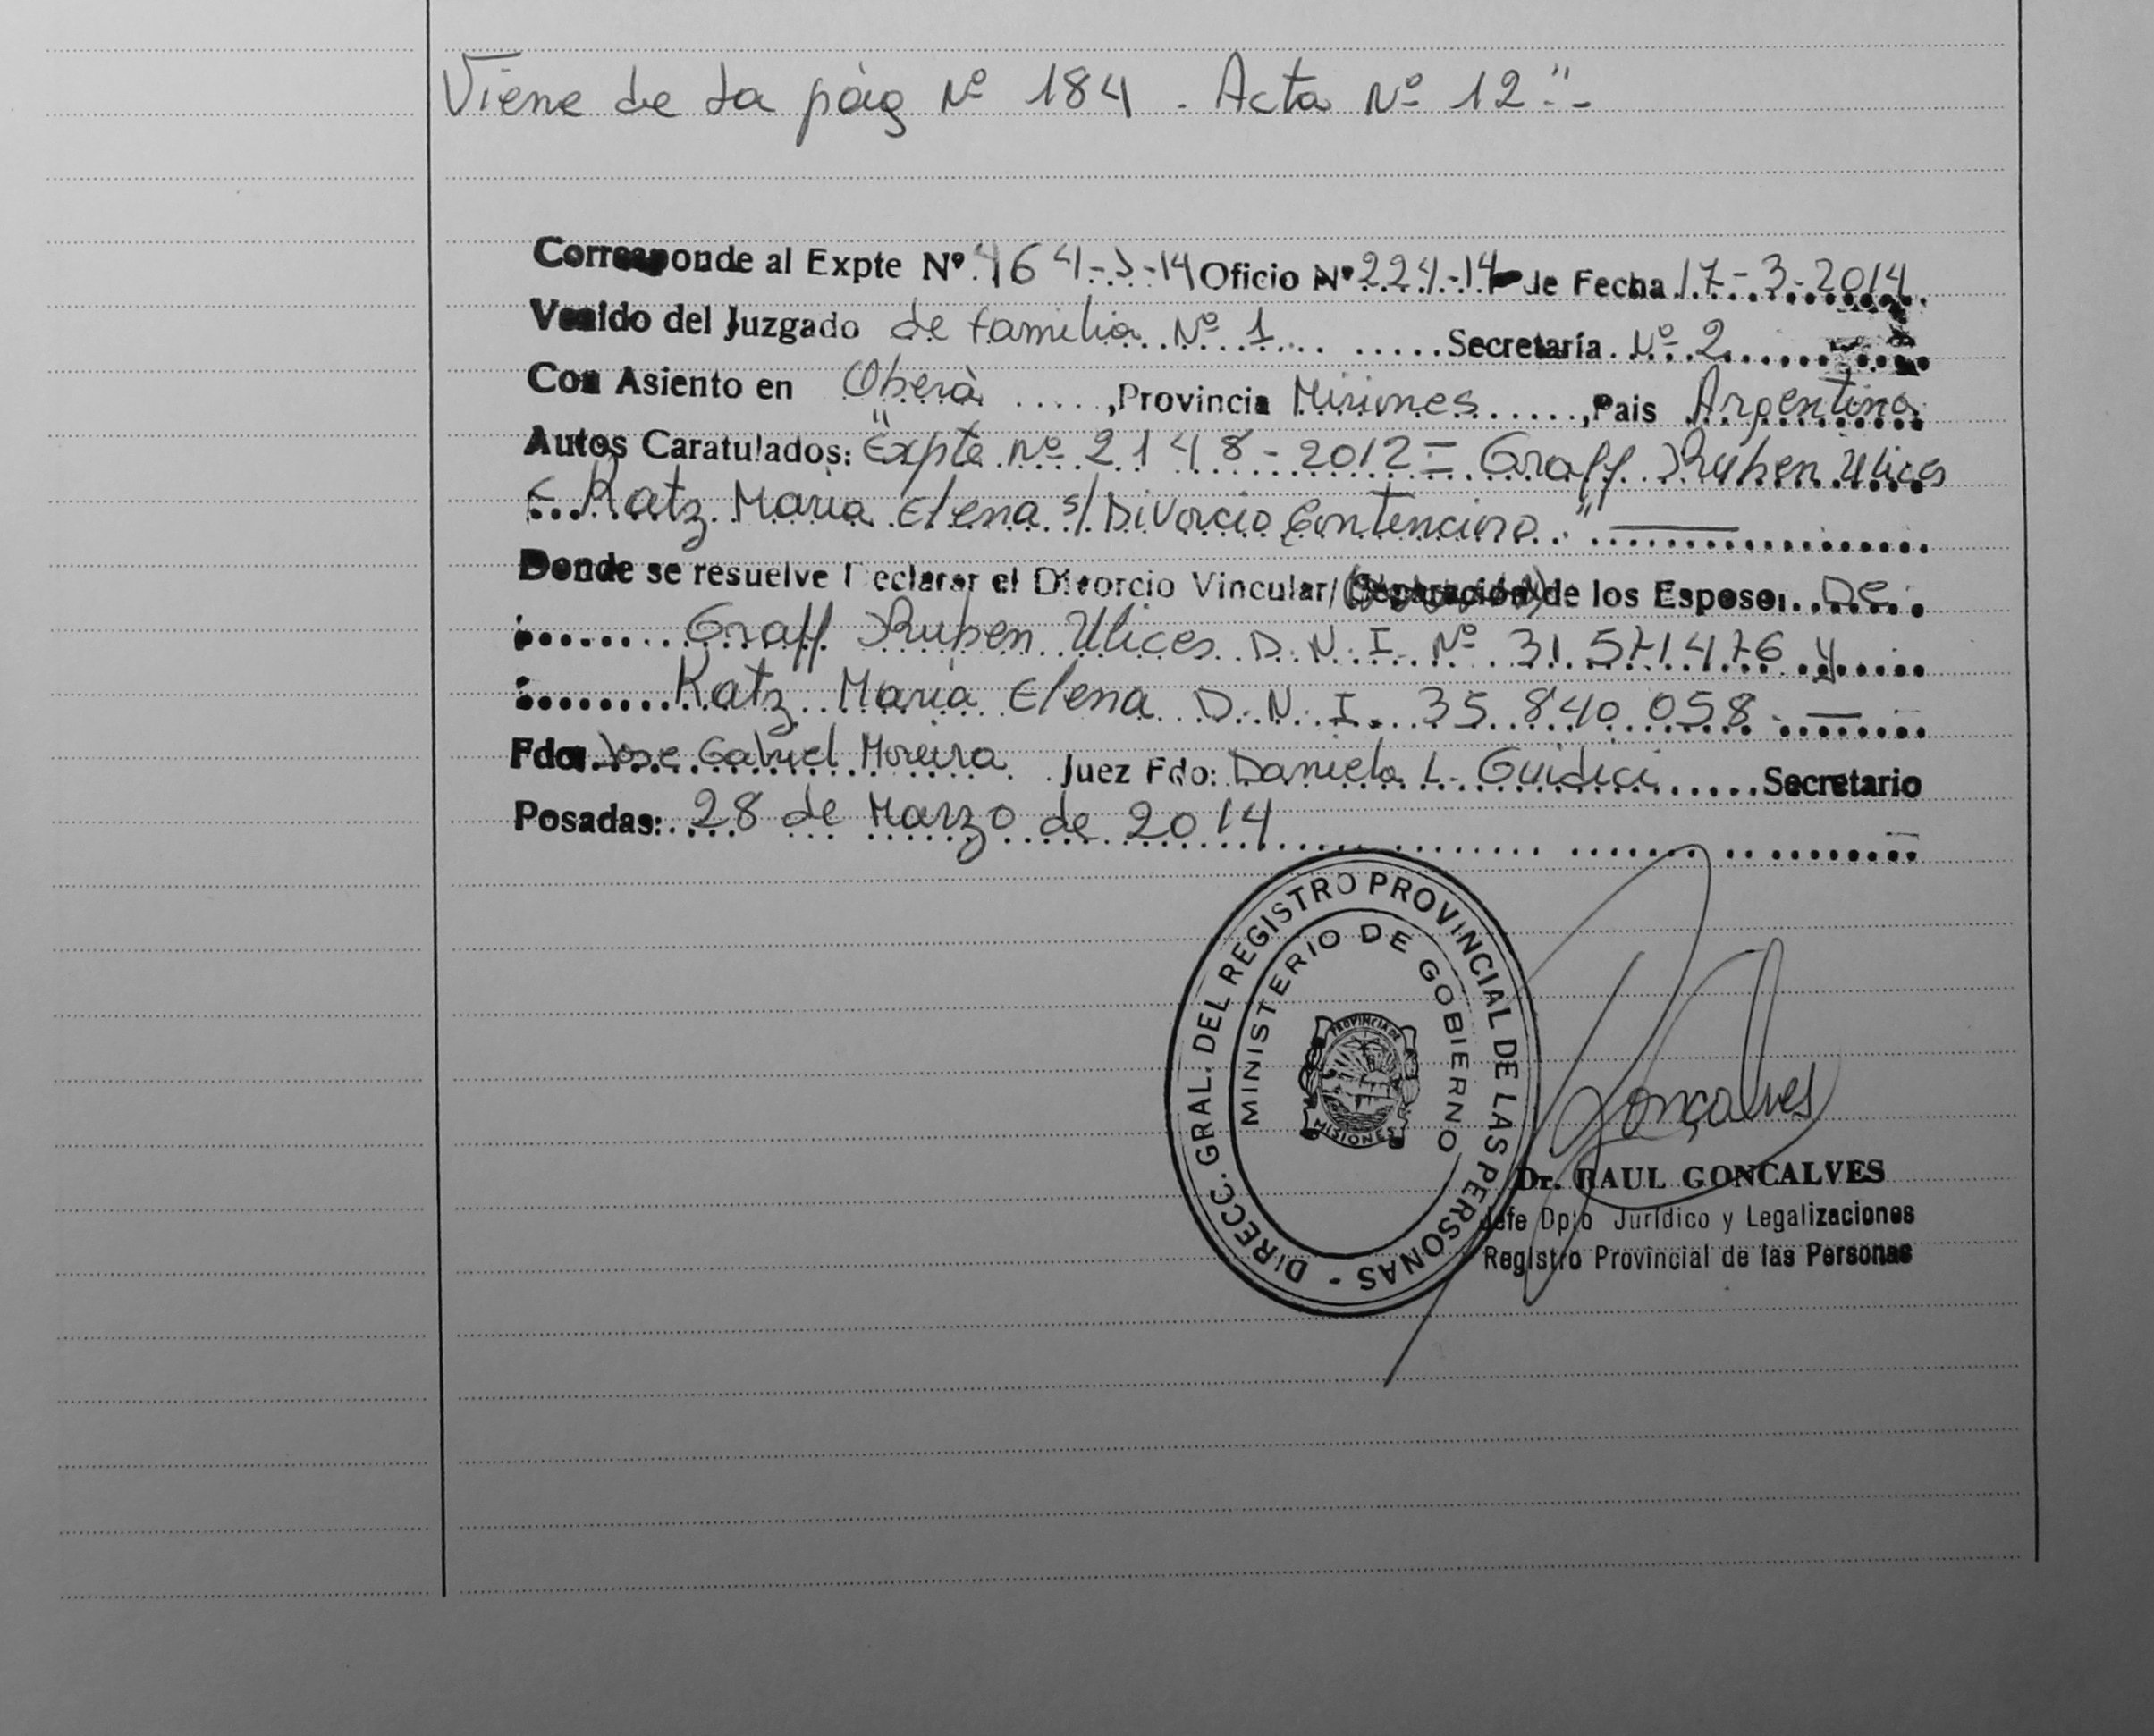 Viene de la pág Nº 184 - Acta Nº 12"-
Corresponde al Expte Nº 464-J-14 Oficio Nº 224-14 de Fecha 17-3-2014
Venido del Juzgado de familia Nº 1 Secretaría Nº 2
Con Asiento en Oberà, Provincia Misiones, Pais Argentina
Autos Caratulados: "Expte Nº 2148-2012 - Graff Ruben Ulices
c Katz Maria Elena s/ Divorcio Contencioso."
Donde se resuelve Declarar el Divorcio Vincular/ Separación de los Esposos De
Graff Ruben Ulices D.N.I. Nº 31.571.476 y
Katz Maria Elena D.N.I. 35.840.058.-
Fdo: Jose Gabriel Moreira Juez Fdo: Daniela L. Guidici Secretario
Posadas: 28 de Marzo de 2014
DIRECC. GRAL. DEL REGISTRO PROVINCIAL DE LAS PERSONAS -
MINISTERIO DE GOBIERNO
PROVINCIA DE
MISIONES
Gonçalves
Dr. RAUL GONCALVES
Jefe Dpto Jurídico y Legalizaciones
Registro Provincial de las Personas